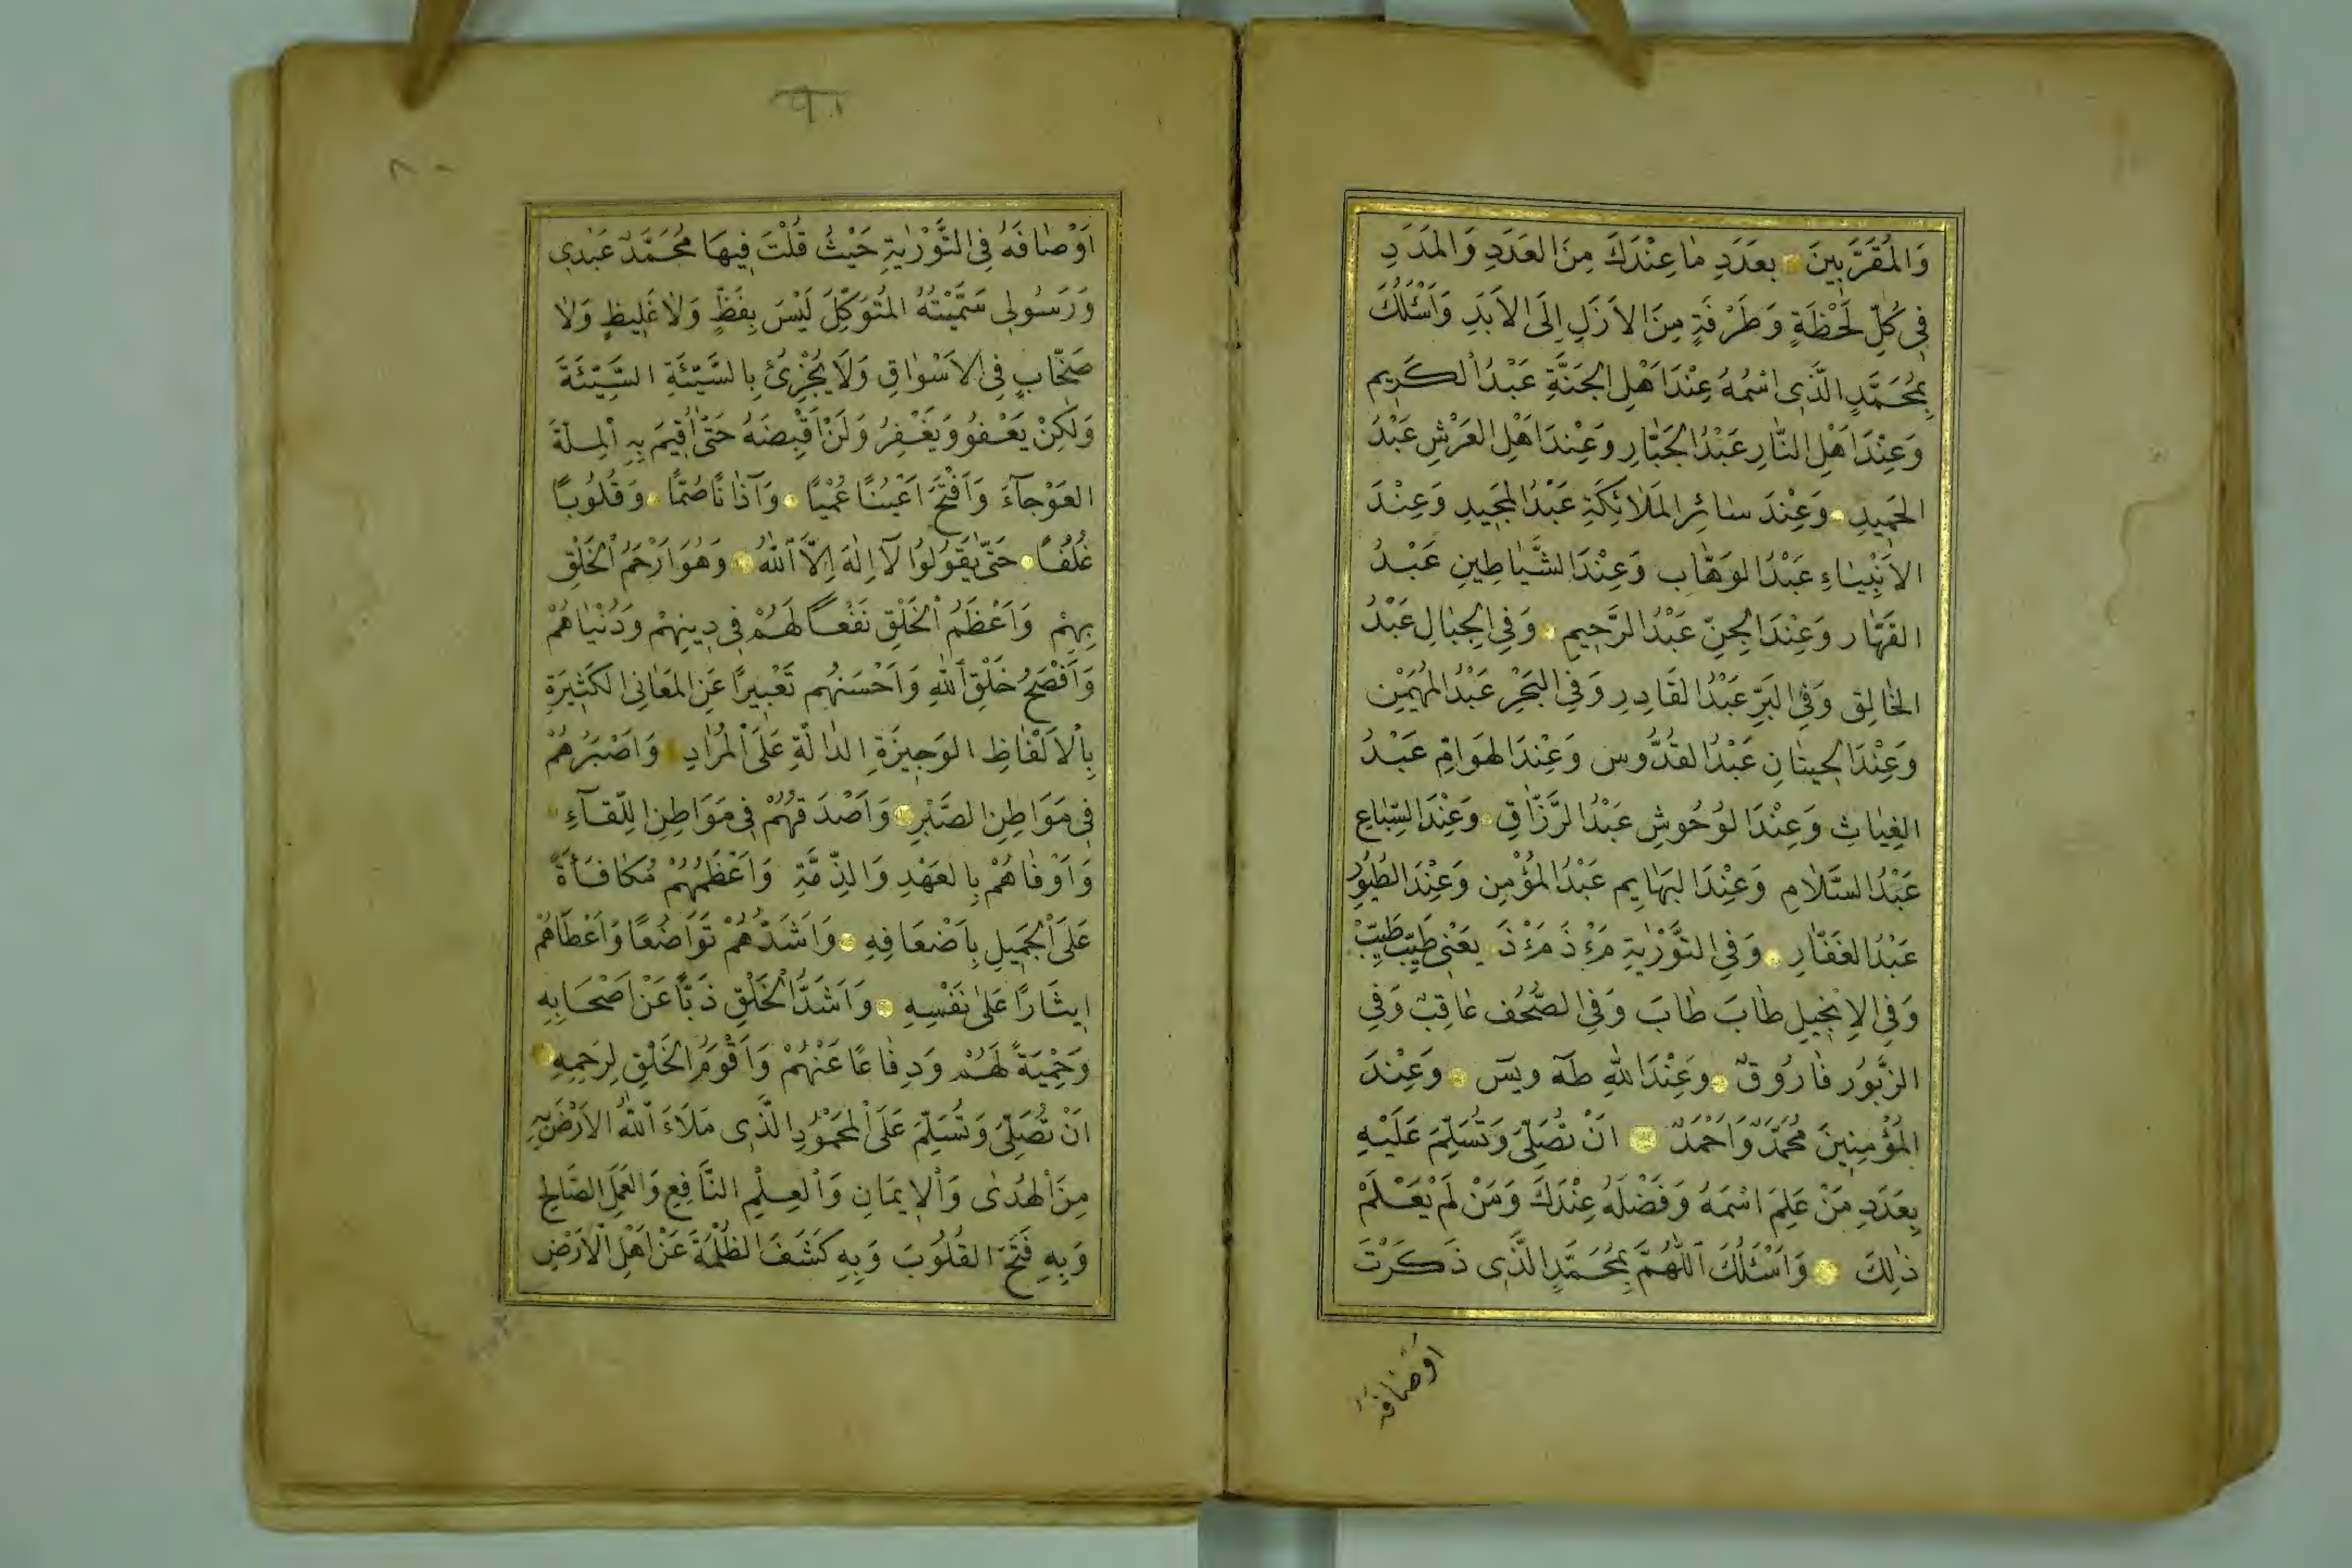 وَالْمُقَرَّبِينَ بِعَدَدِ مَا عِنْدَكَ مِنَ الْعَدَدِ وَالْمَدَدِ
فِي كُلِّ لَحْظَةٍ وَطَرْفَةٍ مِنَ الْاَزَلِ اِلَى الْاَبَدِ وَاَسْئَلُكَ
بِمُحَمَّدٍ الَّذِى اسْمُهُ عِنْدَ اَهْلِ الْجَنَّةِ عَبْدُ الْكَرِيمِ
وَعِنْدَ اَهْلِ النَّارِ عَبْدُ الْجَبَّارِ وَعِنْدَ اَهْلِ الْعَرْشِ عَبْدُ
الْحَمِيدِ وَعِنْدَ سَائِرِ الْمَلَائِكَةِ عَبْدُ الْمَجِيدِ وَعِنْدَ
الْاَنْبِيَاءِ عَبْدُ الْوَهَّابِ وَعِنْدَ الشَّيَاطِينِ عَبْدُ
الْقَهَّارِ وَعِنْدَ الْجِنِّ عَبْدُ الرَّحِيمِ وَفِي الْجِبَالِ عَبْدُ
الْخَالِقِ وَفِي الْبَرِّ عَبْدُ الْقَادِرِ وَفِي الْبَحْرِ عَبْدُ الْمُهَيْمِنِ
وَعِنْدَ الْحِيتَانِ عَبْدُ الْقُدُّوسِ وَعِنْدَ الْهَوَامِّ عَبْدُ
الْغِيَاثِ وَعِنْدَ الْوُحُوشِ عَبْدُ الرَّزَّاقِ وَعِنْدَ السِّبَاعِ
عَبْدُ السَّلَامِ وَعِنْدَ الْبَهَايِمِ عَبْدُ الْمُؤْمِنِ وَعِنْدَ الطُّيُورِ
عَبْدُ الْغَفَّارِ وَفِي التَّوْرٰيةِ مَؤْذَ مَؤْذَ يَعْنِى طَيِّبٌ طَيِّبٌ
وَفِي الْاِنْجِيلِ طَابَ طَابَ وَفِي الصُّحُفِ عَاقِبٌ وَفِي
الزَّبُورِ فَارُوقٌ وَعِنْدَ اللّٰهِ طٰهٰ وَيٰسٓ وَعِنْدَ
الْمُؤْمِنِينَ مُحَمَّدٌ وَاَحْمَدُ اَنْ تُصَلِّىَ وَتُسَلِّمَ عَلَيْهِ
بِعَدَدِ مَنْ عَلِمَ اسْمَهُ وَفَضْلَهُ عِنْدَكَ وَمَنْ لَمْ يَعْلَمْ
ذٰلِكَ وَاَسْئَلُكَ اَللّٰهُمَّ بِمُحَمَّدٍ الَّذِى ذَكَرْتَ
اَوْصَافَهُ
٩١
٨٠
اَوْصَافَهُ فِي التَّوْرٰيةِ حَيْثُ قُلْتَ فِيهَا مُحَمَّدٌ عَبْدِى
وَرَسُولِى سَمَّيْتُهُ الْمُتَوَكِّلَ لَيْسَ بِفَظٍّ وَلَا غَلِيظٍ وَلَا
صَخَّابٍ فِي الْاَسْوَاقِ وَلَا يُجْزِئُ بِالسَّيِّئَةِ السَّيِّئَةَ
وَلٰكِنْ يَعْفُو وَيَغْفِرُ وَلَنْ اَقْبِضَهُ حَتّٰى اُقِيمَ بِهِ الْمِلَّةَ
الْعَوْجَآءَ وَاَفْتَحَ اَعْيُنًا عُمْيًا وَآذَانًا صُمًّا وَقُلُوبًا
غُلْفًا حَتّٰى يَقُولُوا لَآ اِلٰهَ اِلَّا اللّٰهُ وَهُوَ اَرْحَمُ الْخَلْقِ
بِهِمْ وَاَعْظَمُ الْخَلْقِ نَفْعًا لَهُمْ فِي دِينِهِمْ وَدُنْيَاهُمْ
وَاَفْصَحُ خَلْقِ اللّٰهِ وَاَحْسَنُهُمْ تَعْبِيرًا عَنِ الْمَعَانِى الْكَثِيرَةِ
بِالْاَلْفَاظِ الْوَجِيزَةِ الدَّالَّةِ عَلَى الْمُرَادِ وَاَصْبَرُهُمْ
فِي مَوَاطِنِ الصَّبْرِ وَاَصْدَقُهُمْ فِي مَوَاطِنِ اللِّقَآءِ
وَاَوْفَاهُمْ بِالْعَهْدِ وَالذِّمَّةِ وَاَعْظَمُهُمْ مُكَافَاَةً
عَلَى الْجَمِيلِ بِاَضْعَافِهِ وَاَشَدُّهُمْ تَوَاضُعًا وَاَعْطَاهُمْ
اِيثَارًا عَلٰى نَفْسِهِ وَاَشَدُّ الْخَلْقِ ذَبًّا عَنْ اَصْحَابِهِ
وَحِمْيَةً لَهُمْ وَدِفَاعًا عَنْهُمْ وَاَقْوَمُ الْخَلْقِ لِرَحِمِهِ
اَنْ تُصَلِّىَ وَتُسَلِّمَ عَلَى الْمَحْمُودِ الَّذِى مَلَاَءَ اللّٰهُ الْاَرْضَ بِهِ
مِنَ الْهُدٰى وَالْاِيمَانِ وَالْعِلْمِ النَّافِعِ وَالْعَمَلِ الصَّالِحِ
وَبِهِ فَتَحَ الْقُلُوبَ وَبِهِ كَشَفَ الظُّلْمَةَ عَنْ اَهْلِ الْاَرْضِ